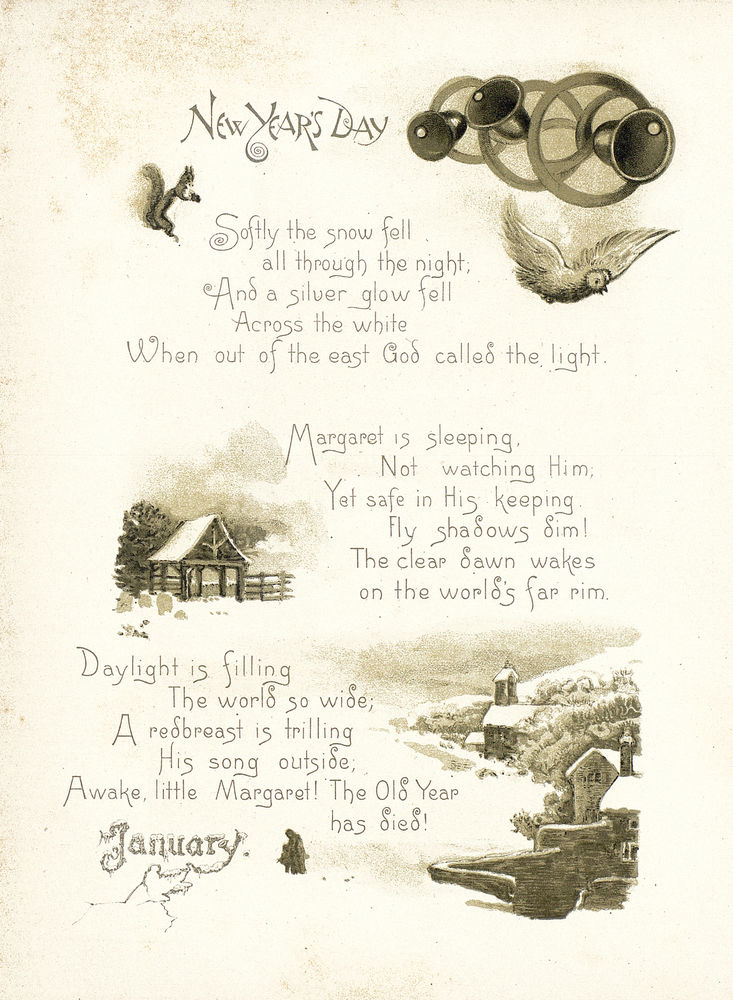 New Year's Day
Softly the snow fell
all through the night;
And a silver glow fell
Across the white
When out of the east God called the light.
Margaret is sleeping,
Not watching Him;
Yet safe in His keeping
Fly shadows dim!
The clear dawn wakes
on the world's far rim.
Daylight is filling
The world so wide;
A redbreast is trilling
His song outside;
Awake, little Margaret! The Old Year
has died!
January.